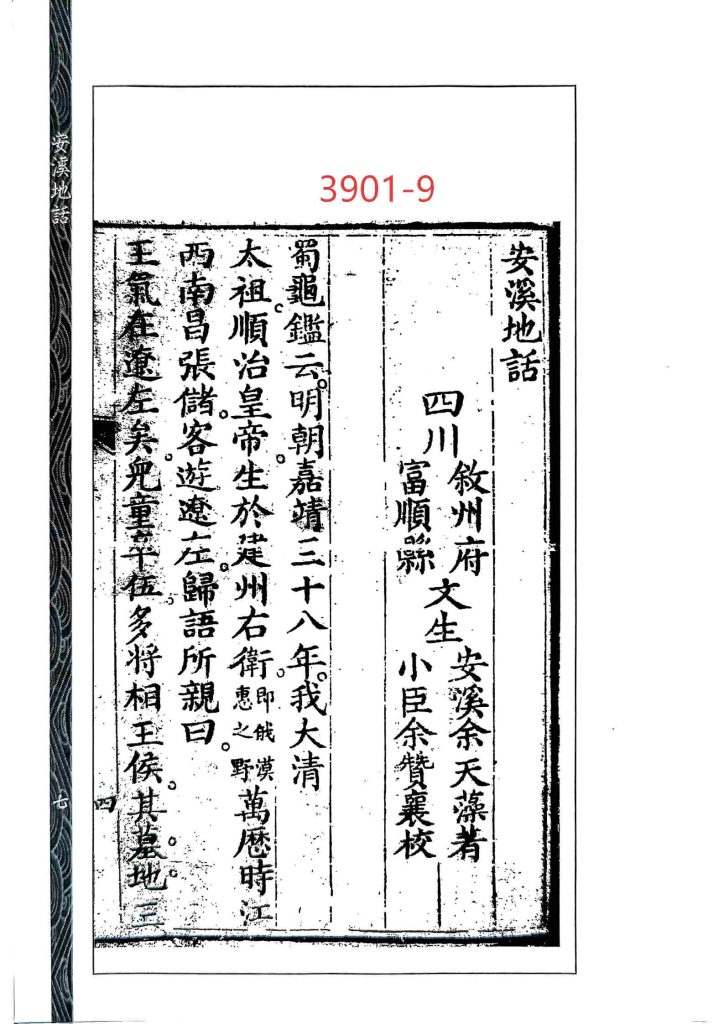 安溪地話
3901-9
安溪地話
四川
敘州府
富順縣
文生
安溪余天藻著
小臣余贊襄校
蜀龜鑑云明朝嘉靖三十八年我大清
太祖順治皇帝生於建州右衛即俄漠惠之野萬歷時江
西南昌張儲客遊遼左歸語所親曰
王氣在遼左矣兒童卒伍多将相王侯其墓地三
四
七